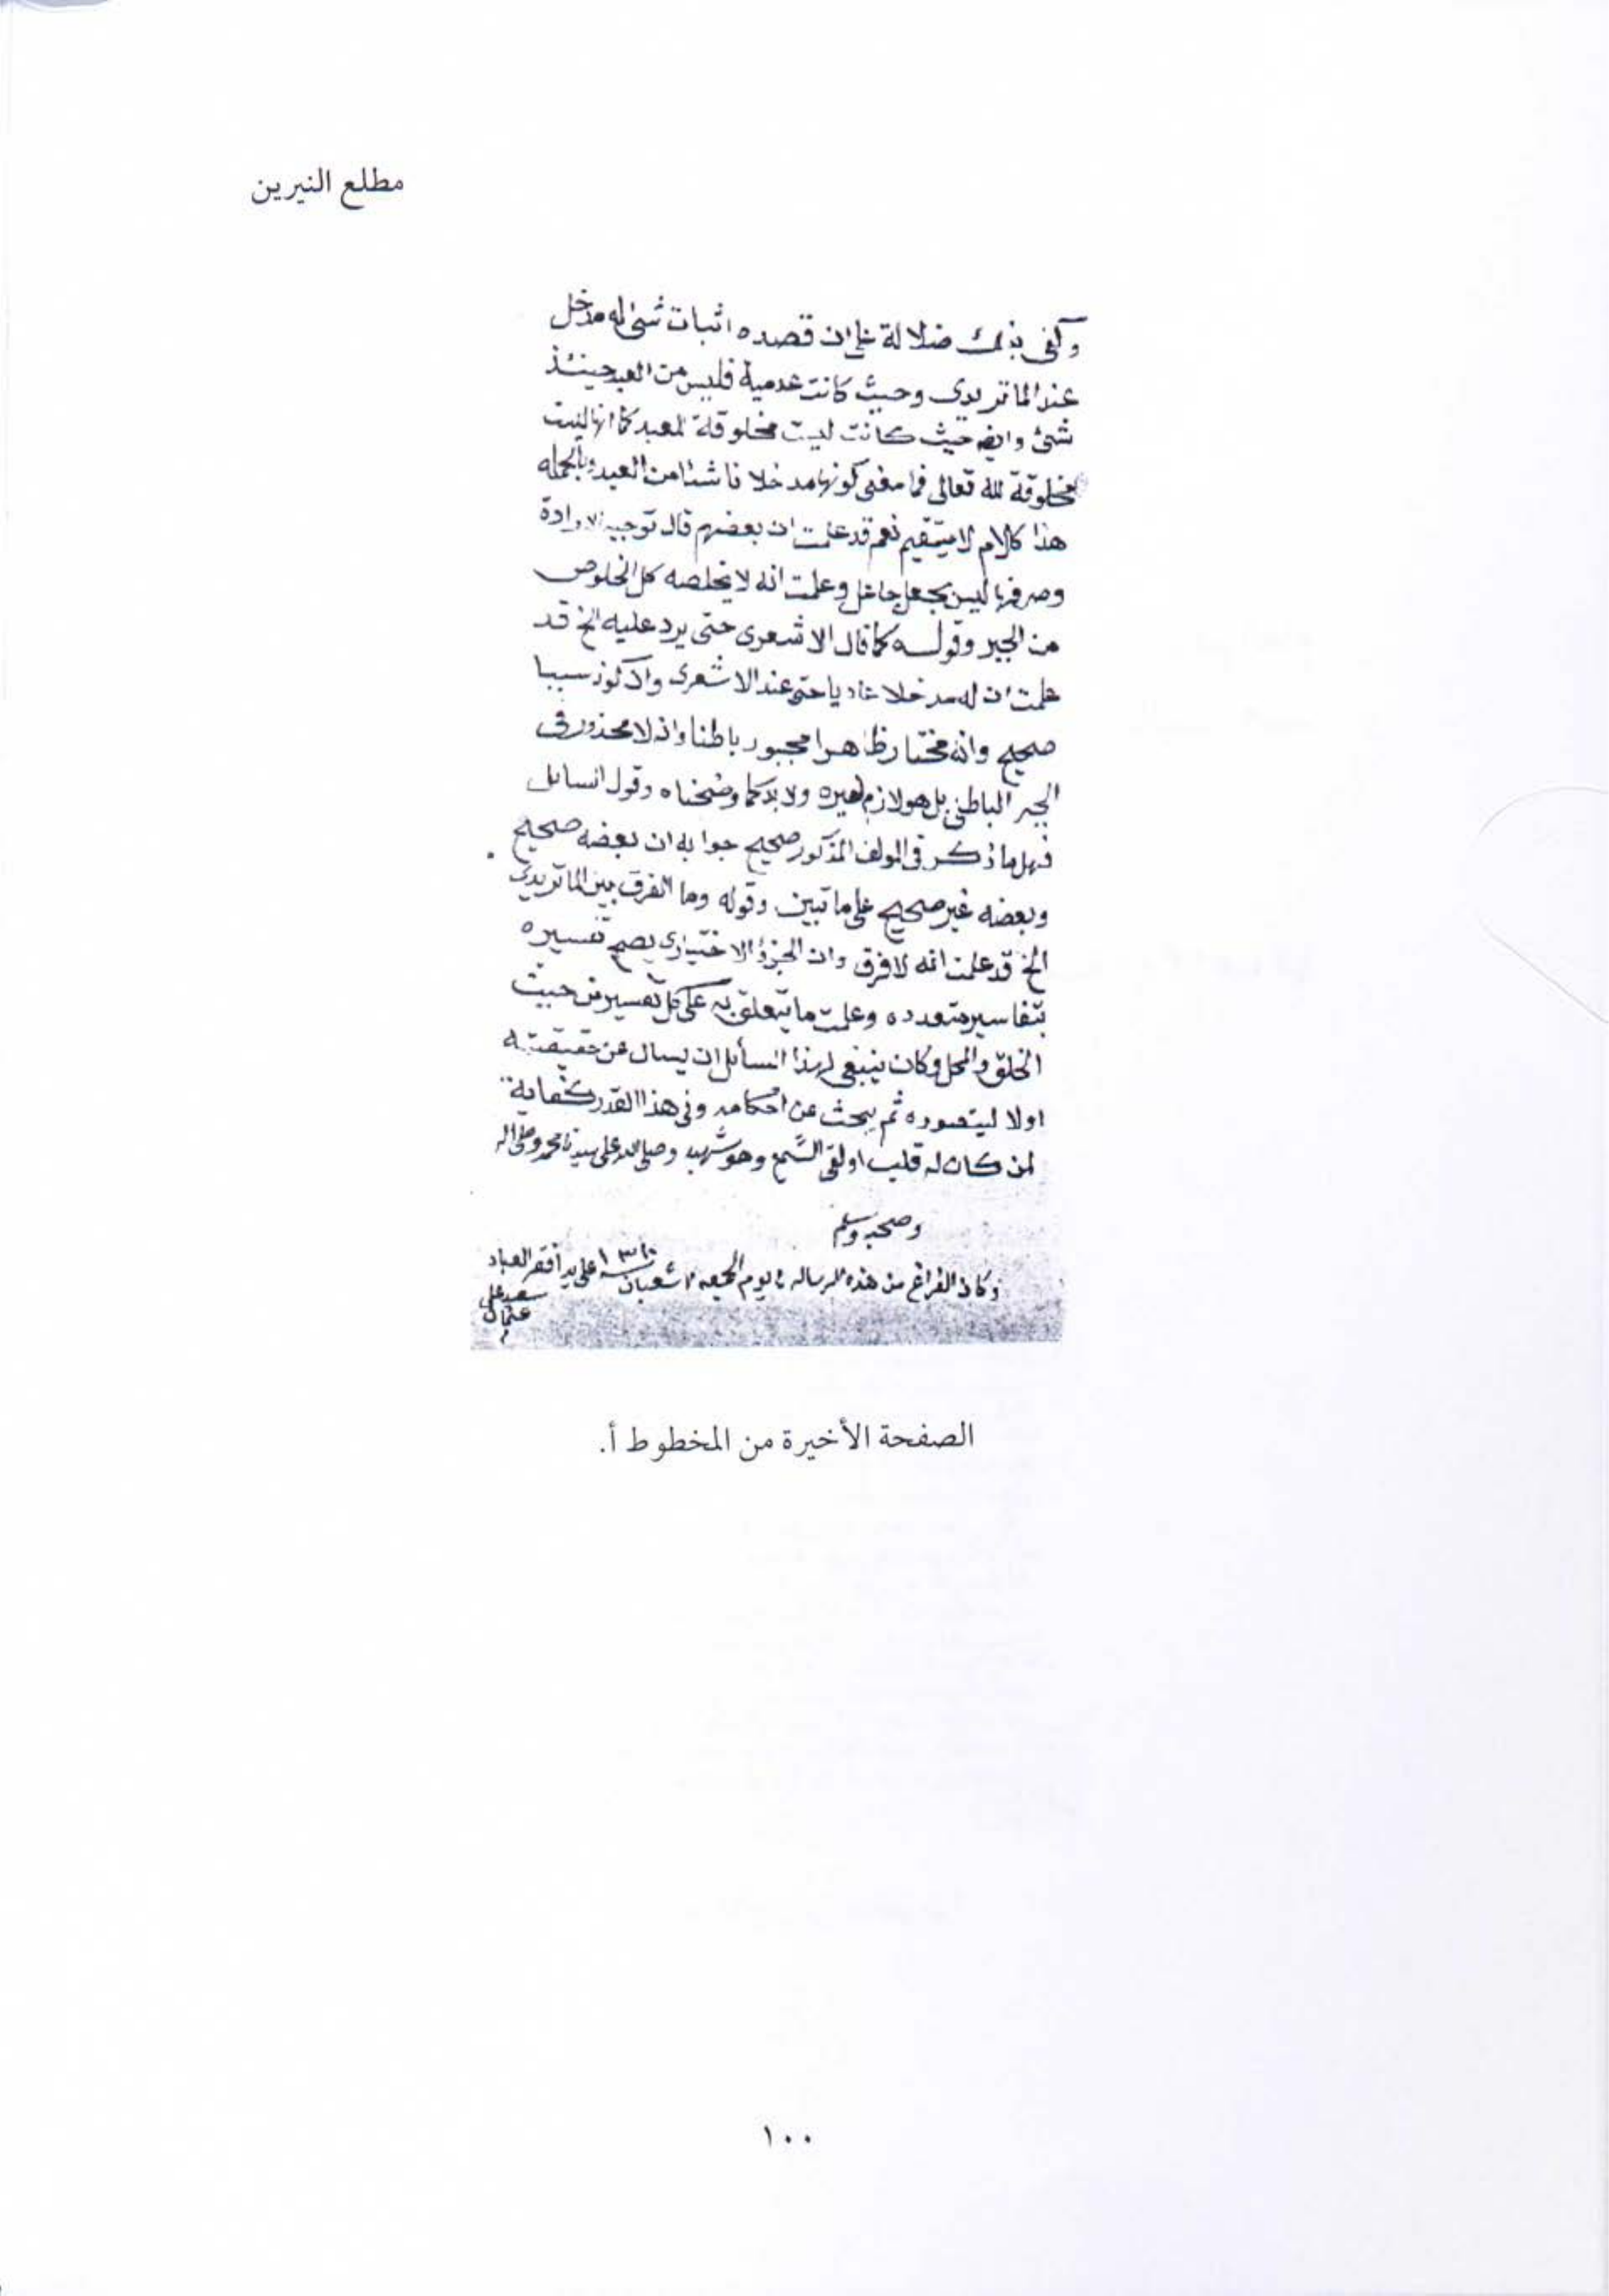 مطلع النيرين
وكفى بذلك ضلالة على ان قصده اثبات شئ له مدخل
عند الماتريدى وحيث كانت عدمية فليس من العبد حينئذ
شئ وايضه حيث كانت ليست مخلوقة للعبد كما انها ليست
مخلوقة لله تعالى فما معنى كونها مدخلا ناشئا من العبد وبالجمله
هذا كلام لا يستقيم نعم قد علمت ان بعضهم قال توجيه الارادة
وصرفها ليس بجعل جاعل وعلمت انه لا يخلصه كل الخلوص
من الجبر وقوله كما قال الاشعرى حتى يرد عليه الخ قد
علمت ان له مدخلا عاديا حتى عند الاشعرى سببا
صحيح وانه مختار ظاهرا مجبور باطنا وانه لا محذور فى
الجبر الباطنى بل هو لازم ولا بد كما وضحناه وقول السائل
فهل ما ذكر فى المولف المذكور صحيح جوابه ان بعضه صحيح
وبعضه غير صحيح على ما تبين وقوله وما الفرق بين الماتريدى
الخ قد علمت انه لا فرق وان الجزؤ الاختيارى يصح تفسيره
بتفاسير متعدده وعلمت ما يتعلق به على كل تفسير من حيث
الخلق والمحل وكان ينبغى لهذا السائل ان يسال عن حقيقته
اولا ليتصوره ثم يبحث عن احكامه وفى هذا القدر كفاية
لمن كان له قلب او لقى السمع وهو شهيد وصلى الله على سيدنا محمد وعلى اله
وصحبه وسلم
وكان الفراغ من هذه الرساله فى يوم الجمعه شعبان على يد أفقر العباد
سعيد على
عثمان
م
الصفحة الأخيرة من المخطوط أ.
١٠٠